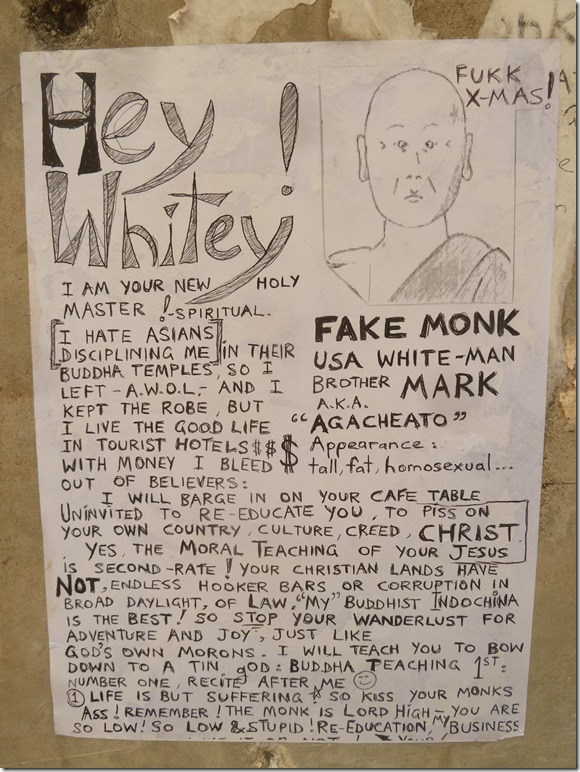 Hey!
Whitey
FUKK
X-MAS!
I AM YOUR NEW HOLY
MASTER! -SPIRITUAL.
[I HATE ASIANS
DISCIPLINING ME] IN THEIR
BUDDHA TEMPLES, SO I
LEFT - A.W.O.L.- AND I
KEPT THE ROBE, BUT
I LIVE THE GOOD LIFE
IN TOURIST HOTELS $$$
WITH MONEY I BLEED $
OUT OF BELIEVERS:
FAKE MONK
USA WHITE-MAN
BROTHER MARK
A.K.A.
"AGACHEATO"
Appearance:
tall, fat, homosexual...
I WILL BARGE IN ON YOUR CAFE TABLE
UNINVITED TO RE-EDUCATE YOU, TO PISS ON
YOUR OWN COUNTRY, CULTURE, CREED, CHRIST.
YES, THE MORAL TEACHING OF YOUR JESUS
IS SECOND-RATE! YOUR CHRISTIAN LANDS HAVE
NOT, ENDLESS HOOKER BARS OR CORRUPTION IN
BROAD DAYLIGHT, OF LAW. "MY" BUDDHIST INDOCHINA
IS THE BEST! SO STOP YOUR WANDERLUST FOR
ADVENTURE AND JOY, JUST LIKE
GOD'S OWN MORONS. I WILL TEACH YOU TO BOW
DOWN TO A TIN GOD: BUDDHA TEACHING 1ST:
NUMBER ONE, RECITE AFTER ME ☺
① LIFE IS BUT SUFFERING ☆ SO KISS YOUR MONKS
ASS! REMEMBER! THE MONK IS LORD HIGH - YOU ARE
SO LOW! SO LOW & STUPID! RE-EDUCATION, MY BUSINESS